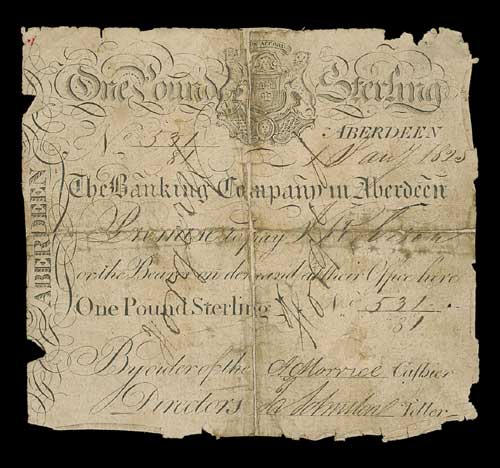 BON ACCORD
One Pound Sterling
ABERDEEN
No 531/81
1 Jany 1825
The Banking Company in Aberdeen
Promise to pay
or the Bearer on demand at their Office here
One Pound Sterling No 531/81
By order of the Cashier
Directors Teller
ABERDEEN